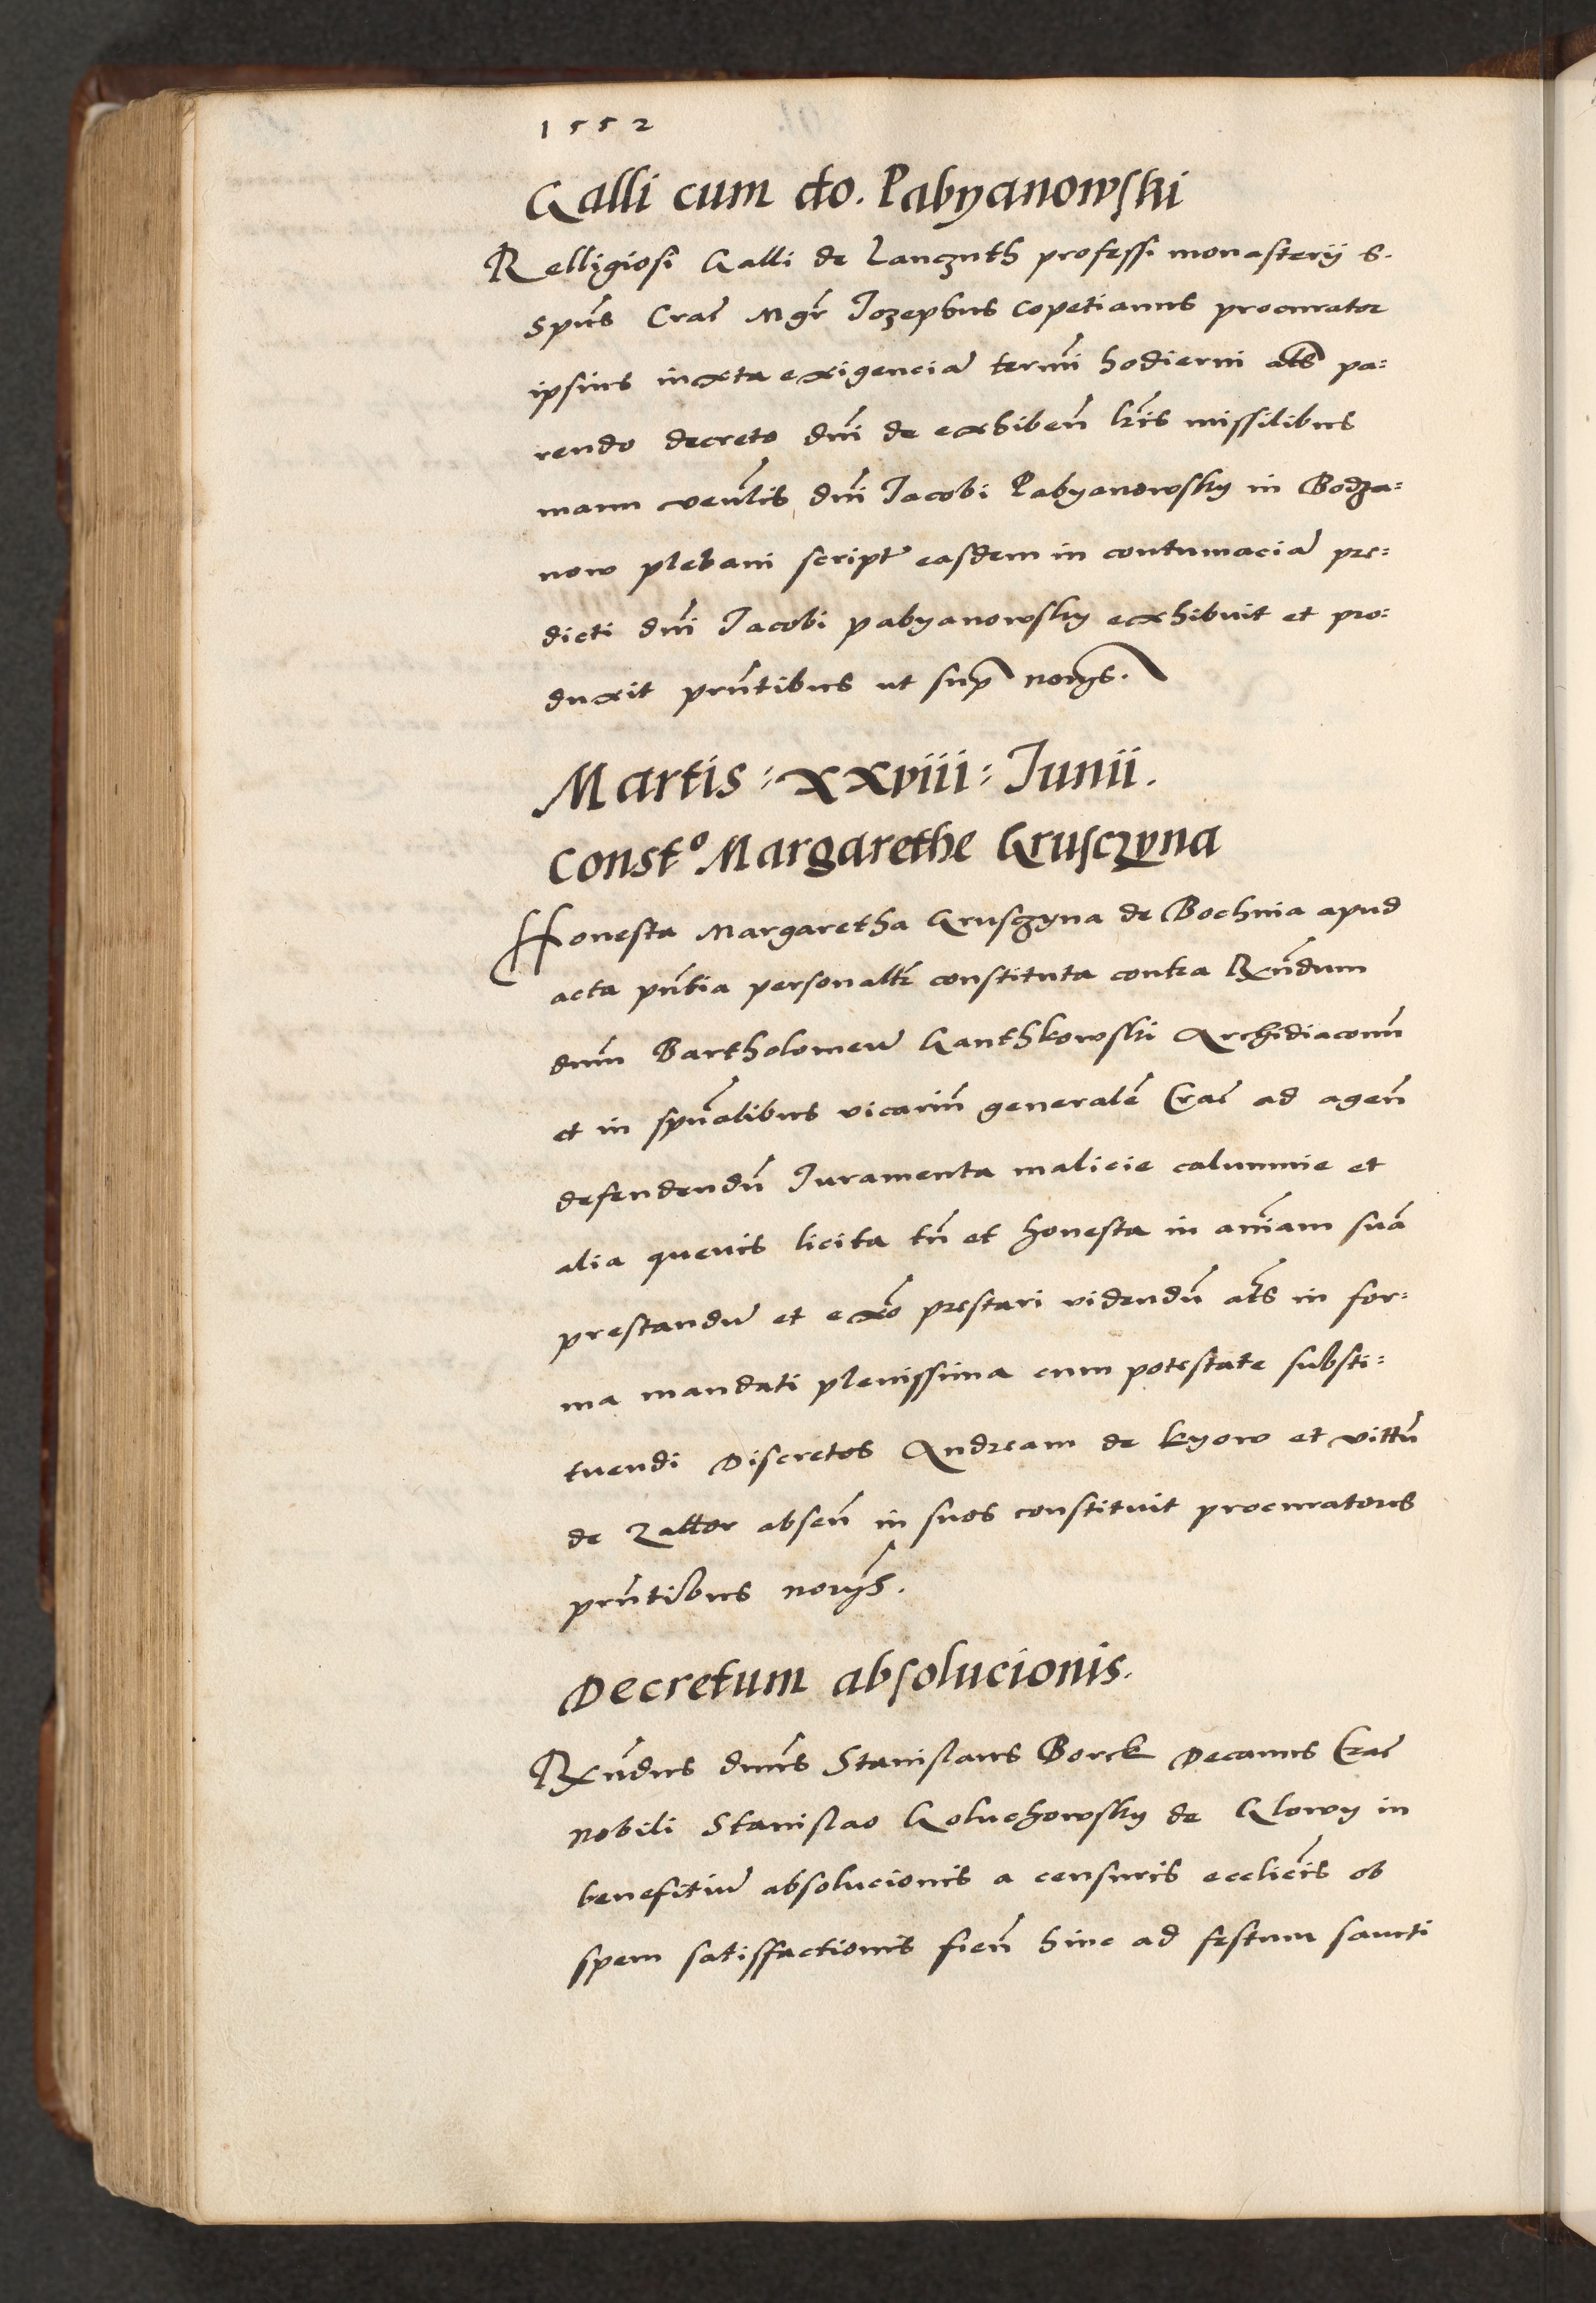 1552
Galli cum do. Pabyanowski
Relligiosi Galli de Lanczuth professi monasterij S.
Spũs Crac̃ Mgr̃ Jozephus Copetianus procurator
ipsius iuxta exigenciã termĩ hodierni al̃s pa=
rendo decreto dñi de exhibeñ lr̃is missilibus
manu veñlis dñi Jacobi Pabyanowsky in Bodza=
now plebani script̃ easdem in contumaciã pre=
dicti dñi Jacobi pabyanowsky exhibuit et pro=
duxit prñtibus ut sup̃ norijs.
Martis = xxviii = Junii.
Constº Margarethe Grusczyna
Honesta Margaretha Grusczyna de Bochnia apud
acta pñtia personalr̃ constituta contra Rñdum
dnũm Bartholomeũ Ganthkowski Archidiaconũ
et in spũalibus vicariũ generalẽ Crac̃ ad ageñ
defendendũ Juramenta malicie calumnie et
alia quevis licita tñ et honesta in añiam suã
prestandũ et exõ prestari videndũ al̃s in for=
ma mandati plenissima cum potestate substi=
tuendi Discretos Andream de kyow et vittũ
de Zathor abseñ in suos constituit procuratores
prñtibus norijs̃.
Decretum absolucionis.
Rx̃ndus dnũs Stanislaus Borck Decanus Crac̃
nobili Stanislao Goluchowsky de Glowy in
benefitiũ absolucionis a censuris ecclic̃is ob
spem satisfactionis fieñ hinc ad festum sancti